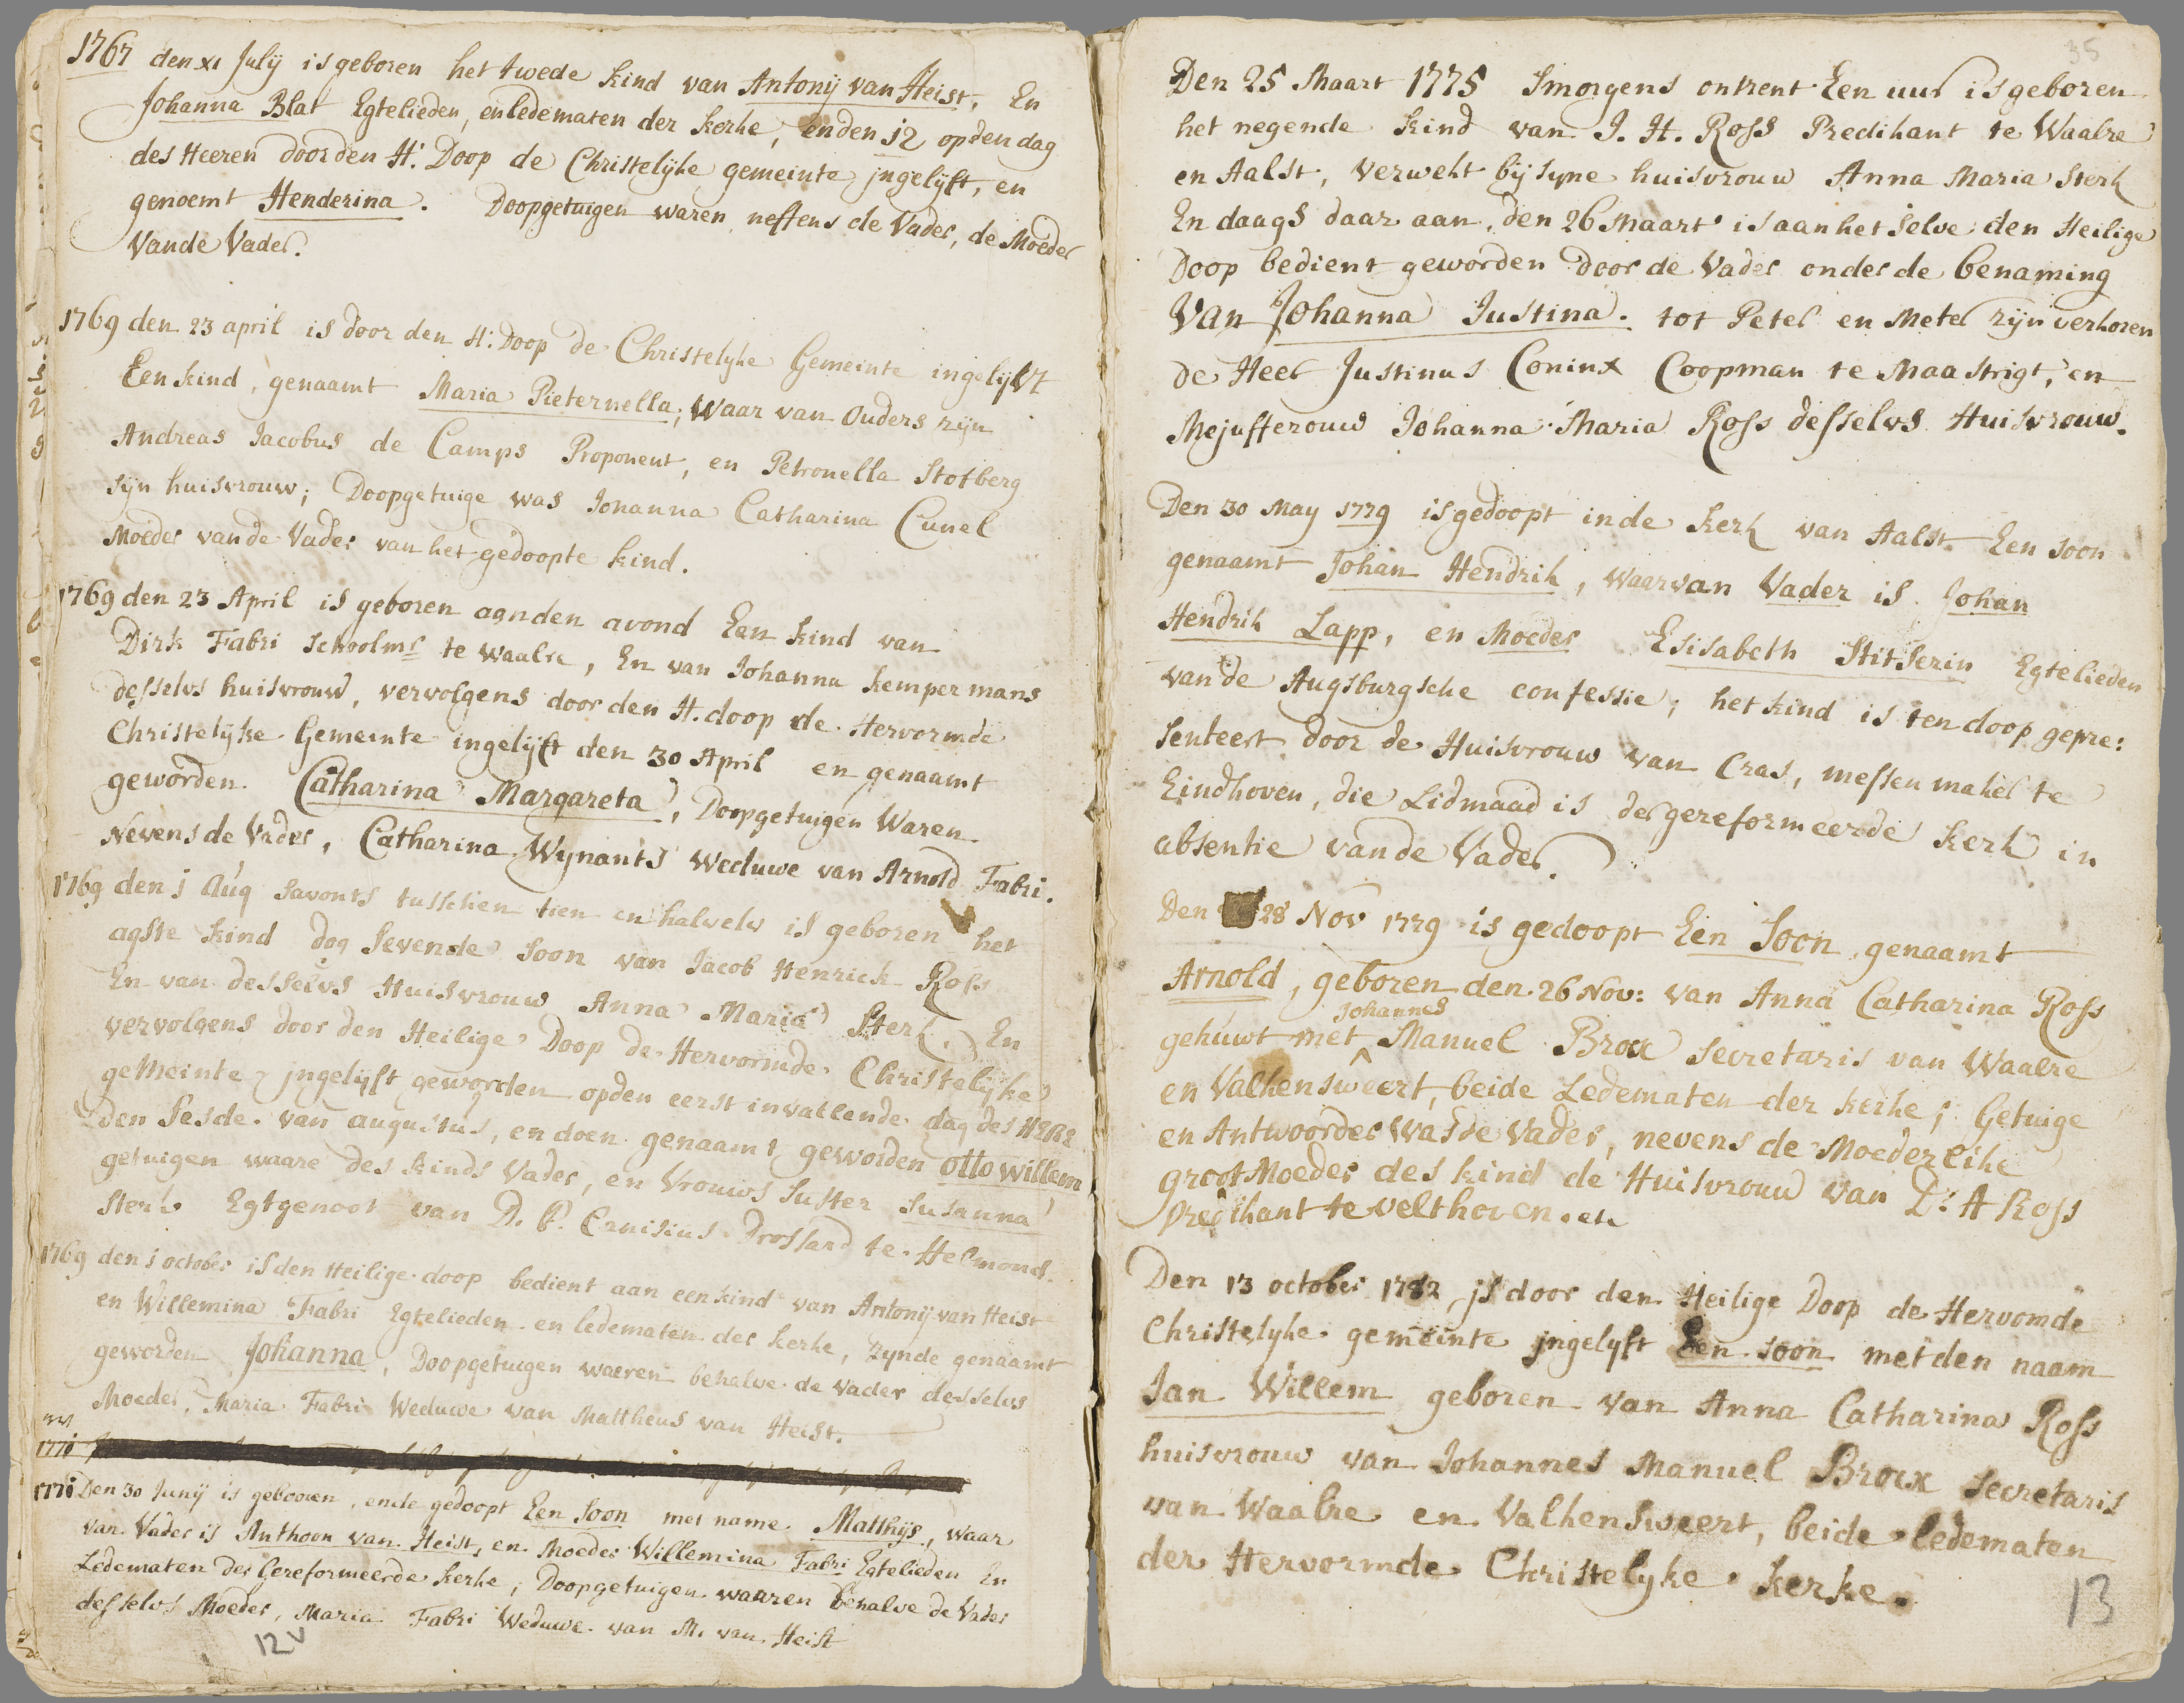 1767 den xi Julij is geboren het twede kind van Antonij van Heist, En
Johanna Blat Egtelieden, en ledematen der kerke, en den 12 op den dag
des Heeren door den H: Doop de Christelijke gemeinte jngelijft, en
genoemt Henderina. Doopgetuigen waren neffens de Vader, de Moeder
Van de Vader.
1769 den 23 april is door den H: Doop de Christelyke Gemeinte ingelijft
Een kind, genaamt Maria Pieternella, Waar van Ouders zijn
Andreas Jacobus de Camps Proponent, en Petronella Stofberg
sijn huisvrouw; Doopgetuige was Johanna Catharina Cunel
Moeder van de Vader van het gedoopte kind.
1769 den 23 April is geboren aan den avond Een kind van
Dirk Fabri schoolmr te Waalre, En van Johanna Kempermans
desselvs huisvrouw, vervolgens door den H. doop de Hervormde
Christelijke Gemeinte ingelijft den 30 April en genaamt
geworden Catharina Margareta, Doopgetuigen Waren
Nevens de Vader, Catharina Wynants Weduwe van Arnold Fabri.
1769 den j Aug savonts tusschen tien en halvelv is geboren het
agste kind dog Sevende Soon van Jacob Henrick Ross
En van desselvs Huisvrouw Anna Maria Sterk. En
vervolgens door den Heilige Doop de Hervormde Christelijke
geMeinte jngelijft geworden op den eerst invallende dag des HERE
den Sesde van augustus, en doen genaamt geworden Otto willem
getuigen waare des kinds Vader, en Vrouws Suster Susanna
Sterk Egtgenoot van D. F. Crusius Drossard te Helmond.
1769 den j october is den Heilige doop bedient aan een kind van Antonij van Heist
en Willemina Fabri Egtelieden en ledematen der kerke, zynde genaamt
geworden Johanna, Doopgetuigen waeren behalve de Vader desselvs
Moeder, Maria Fabri Weduwe van Mattheus van Heist.
1771
1771 Den 30 Junij is gebooren, ende gedoopt Een Soon met name Matthijs, waar
van Vader is Anthoon van Heist, en Moeder Willemina Fabri Egtelieden En
Ledematen der Gereformeerde kerke; Doopgetuigen waaren behalve de Vader
desselvs Moeder, Maria Fabri Weduwe van M. van Heist
12v
35
Den 25 Maart 1775 Smorgens ontrent Een uur is geboren
het negende kind van J. H. Ross Predikant te Waalre
en Aalst, verwekt bij syne huisvrouw Anna Maria Sterk
En daags daar aan, den 26 Maart is aan het selve den Heilige
Doop bedient geworden door de Vader onder de benaming
Van Johanna Justina. tot Peter en Meter zijn verkoren
de Heer Justinus Coninx Coopman te Maastrigt, en
Mejufferouw Johanna Maria Ross desselvs Huisvrouw.
Den 30 May 1779 is gedoopt in de kerk van Aalst Een soon
genaamt Johan Hendrik, Waarvan Vader is Johan
Hendrik Lapp, en Moeder Elisabeth Stitserin Egtelieden
van de Augsburgsche confessie; het kind is ten doop gepre:
senteert door de Huisvrouw van Cras, messenmaker te
Eindhoven, die Lidmaad is der gereformeerde kerk in
absentie van de Vader.
Den 28 Nov 1779 is gedoopt Een Soon genaamt
Arnold, geboren den 26 Nov: van Anna Catharina Ross
Johannes
gehuwt met Manuel Brox secretaris van Waalre
en Valkensweert, beide Ledematen der kerke; Getuige
en Antwoorder Was de Vader, nevens de Moederlike
grootMoeder des kind de Huisvrouw van D: A Ross
Predikant te velthoven. etc
Den 13 october 1782 is door den Heilige Doop de Hervomde
Christelyke gemeinte jngelyft Een soon met den naam
Jan Willem geboren van Anna Catharina Ross
huisvrouw van Johannes Manuel Brox Secretaris
van Waalre en Valkensweert, beide ledematen
der Hervormde Christelyke kerke.
13